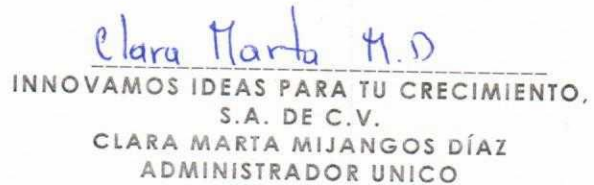 Clara Marta M.D
INNOVAMOS IDEAS PARA TU CRECIMIENTO,
S.A. DE C.V.
CLARA MARTA MIJANGOS DÍAZ
ADMINISTRADOR UNICO